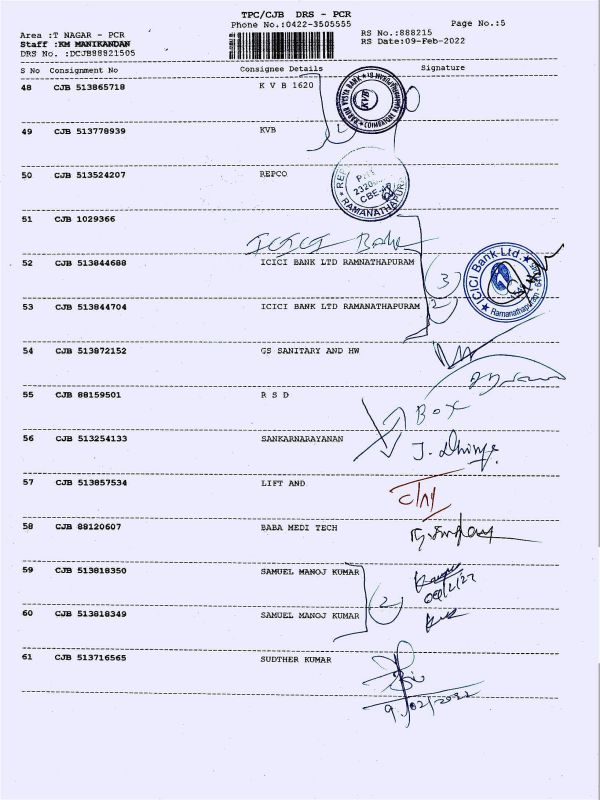 TPC/CJB DRS - PCR
Phone No.:0422-3505555
Page No.:5
Area :T NAGAR - PCR
Staff :KM MANIKANDAN
DRS No. :DCJB88821505
RS No.:888215
RS Date:09-Feb-2022
S No Consignment No Consignee Details Signature
48 CJB 513865718 K V B 1620
KVB
COIMBATORE
49 CJB 513778939 KVB
50 CJB 513524207 REPCO
RAMANATHAPURAM
51 CJB 1029366
ICICI Bank
52 CJB 513844688 ICICI BANK LTD RAMNATHAPURAM
3
ICICI Bank Ltd.
Ramanathapuram
53 CJB 513844704 ICICI BANK LTD RAMANATHAPURAM
2
54 CJB 513872152 GS SANITARY AND HW
55 CJB 88159501 R S D
Box
56 CJB 513254133 SANKARNARAYANAN
57 CJB 513857534 LIFT AND
58 CJB 88120607 BABA MEDI TECH
59 CJB 513818350 SAMUEL MANOJ KUMAR
2
60 CJB 513818349 SAMUEL MANOJ KUMAR
61 CJB 513716565 SUDTHER KUMAR
9/02/2022